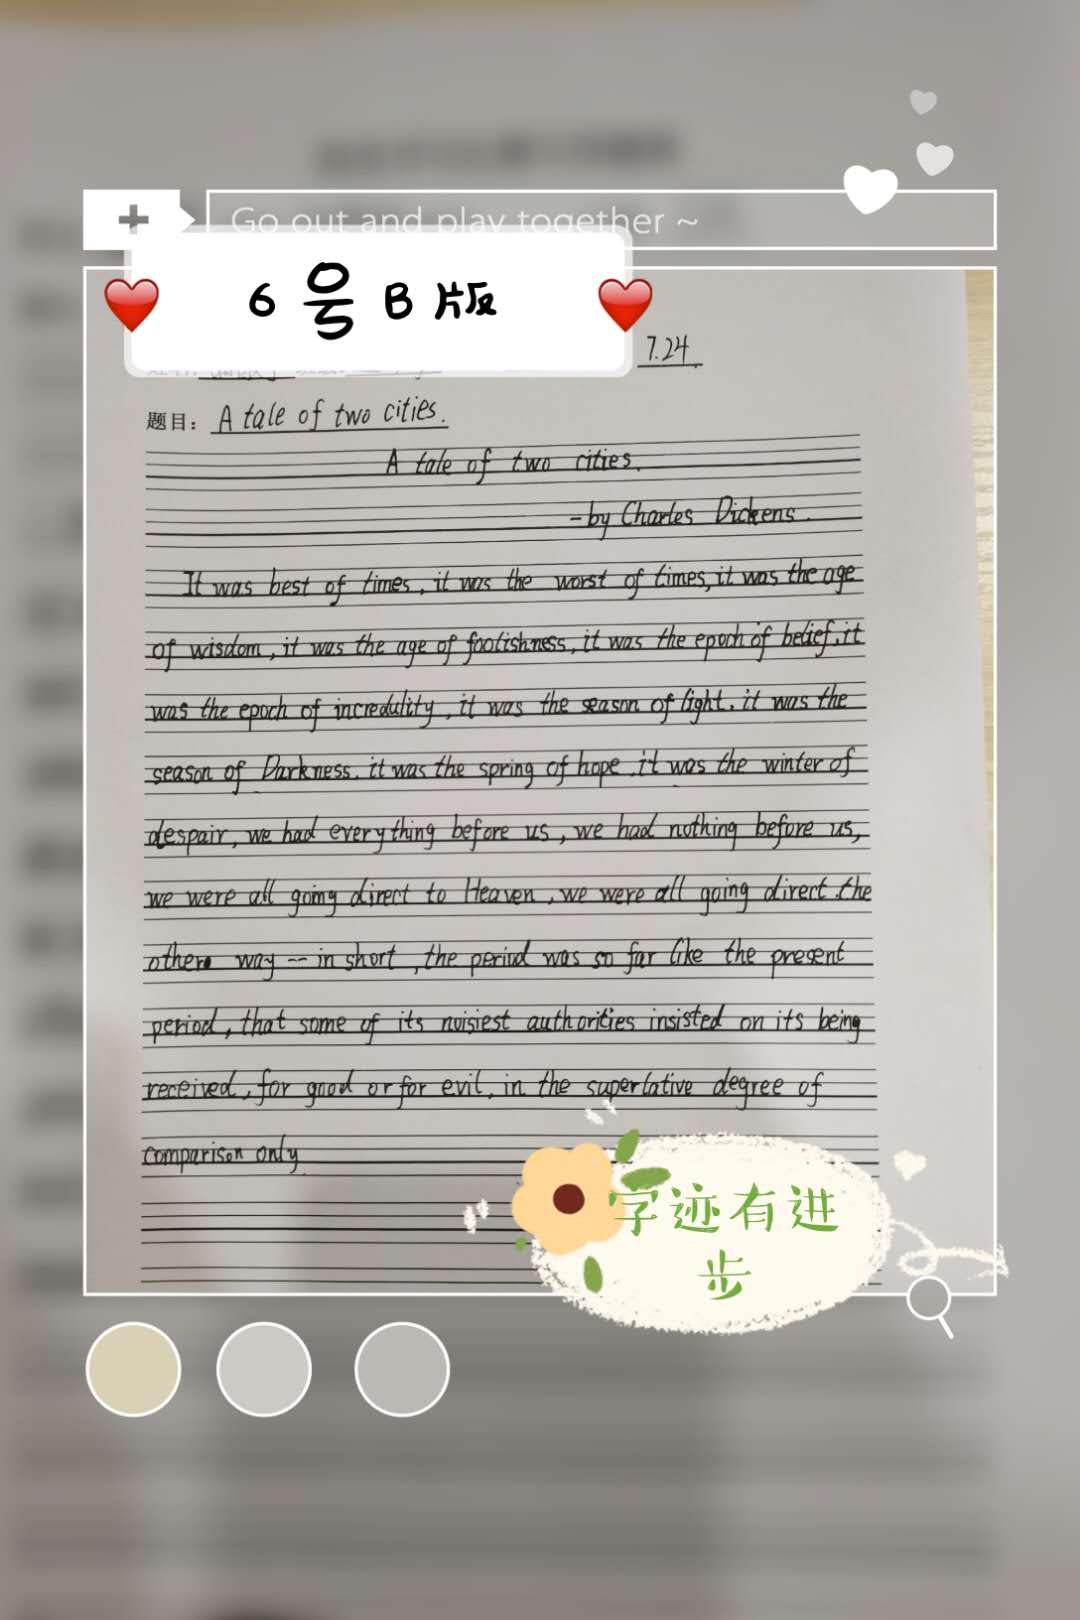 Go out and play together ~
6号B版
7.24
题目: A tale of two cities.
A tale of two cities.
-by Charles Dickens.
It was best of times, it was the worst of times, it was the age
of wisdom, it was the age of foolishness, it was the epoch of belief, it
was the epoch of incredulity, it was the season of light, it was the
season of Darkness, it was the spring of hope, it was the winter of
despair, we had everything before us, we had nothing before us,
we were all going direct to Heaven, we were all going direct the
other way -- in short, the period was so far like the present
period, that some of its noisiest authorities insisted on its being
received, for good or for evil, in the superlative degree of
comparison only.
字迹有进
步